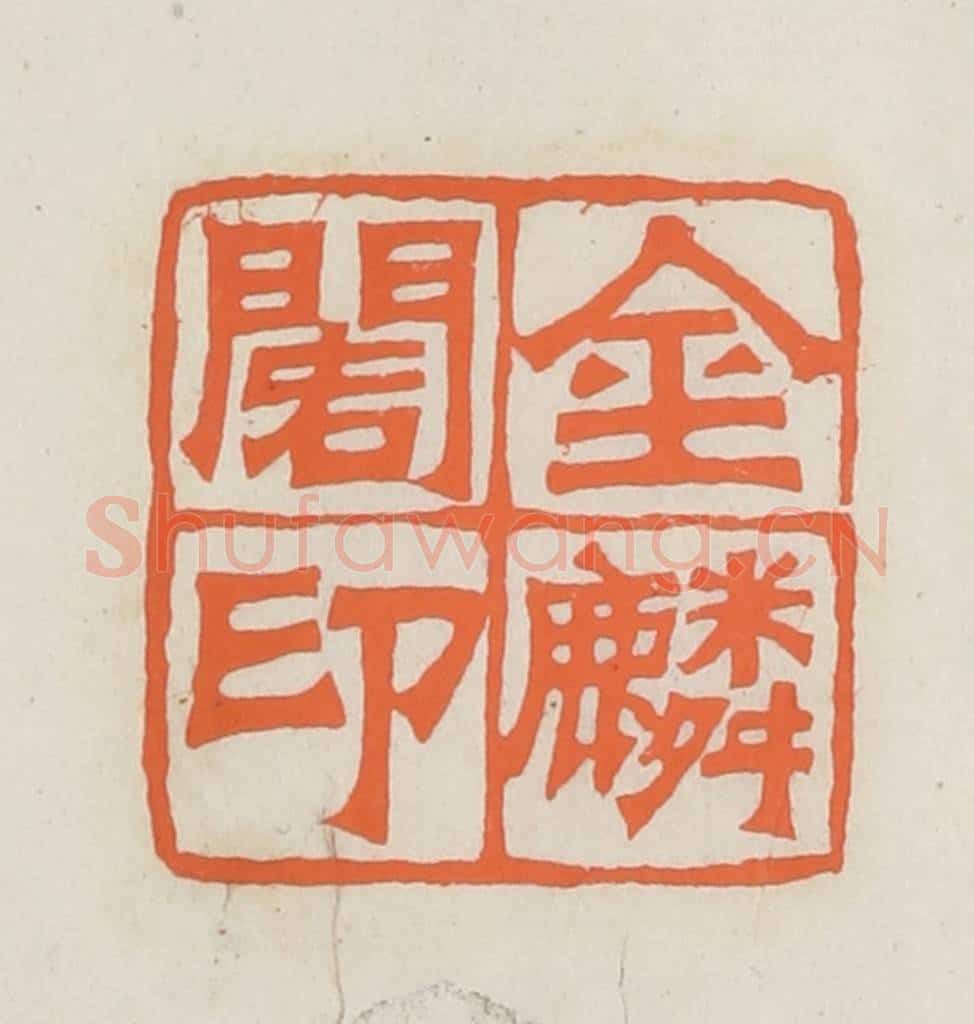 金麟
閣印
Shufawang.CN